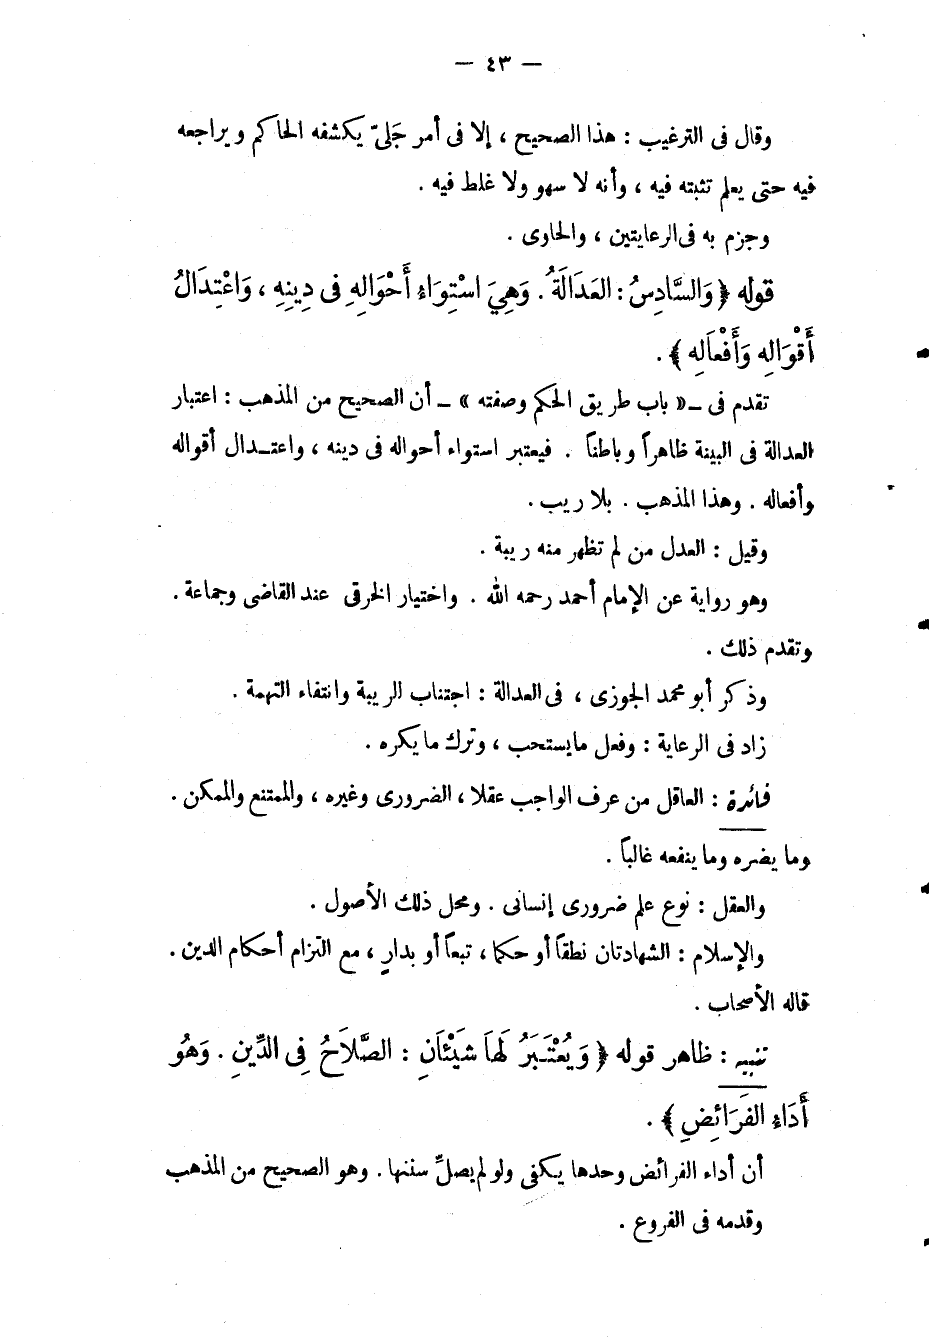 — ٤٣ —
وقال فى الترغيب : هذا الصحيح ، إلا فى أمر جَلىّ يكشفه الحاكم ويراجعه
فيه حتى يعلم تثبته فيه ، وأنه لا سهو ولا غلط فيه .
وجزم به فى الرعايتين ، والحاوى .
قوله ﴿ وَالسَّادِسُ : العَدَالَةُ . وَهِيَ اسْتِوَاءُ أَحْوَالِهِ فِى دِينِهِ ، وَاعْتِدَالُ
أَقْوَالِهِ وَأَفْعَالِهِ ﴾ .
تقدم فى ــ « باب طريق الحكم وصفته » ــ أن الصحيح من المذهب : اعتبار
العدالة فى البينة ظاهراً وباطناً . فيعتبر استواء أحواله فى دينه ، واعتــدال أقواله
وأفعاله . وهذا المذهب . بلا ريب .
وقيل : العدل من لم تظهر منه ريبة .
وهو رواية عن الإمام أحمد رحمه الله . واختيار الخرقى عند القاضى وجماعة .
وتقدم ذلك .
وذكر أبو محمد الجوزى ، فى العدالة : اجتناب الريبة وانتفاء التهمة .
زاد فى الرعاية : وفعل مايستحب ، وترك مايكره .
فائدة : العاقل من عرف الواجب عقلا ، الضرورى وغيره ، والممتنع والممكن .
وما يضره وما ينفعه غالباً .
والعقل : نوع علم ضرورى إنسانى . ومحل ذلك الأصول .
والإسلام : الشهادتان نطقاً أو حكما ، تبعاً أو بدارٍ ، مع التزام أحكام الدين .
قاله الأصحاب .
تنبيه : ظاهر قوله ﴿ وَيُعْتَـبَرُ لَهَا شَيْئَانِ : الصَّلَاحُ فِى الدِّينِ . وَهُوَ
أَدَاءُ الفَرَائِضِ ﴾ .
أن أداء الفرائض وحدها يكفى ولو لم يصلِّ سننها . وهو الصحيح من المذهب
وقدمه فى الفروع .